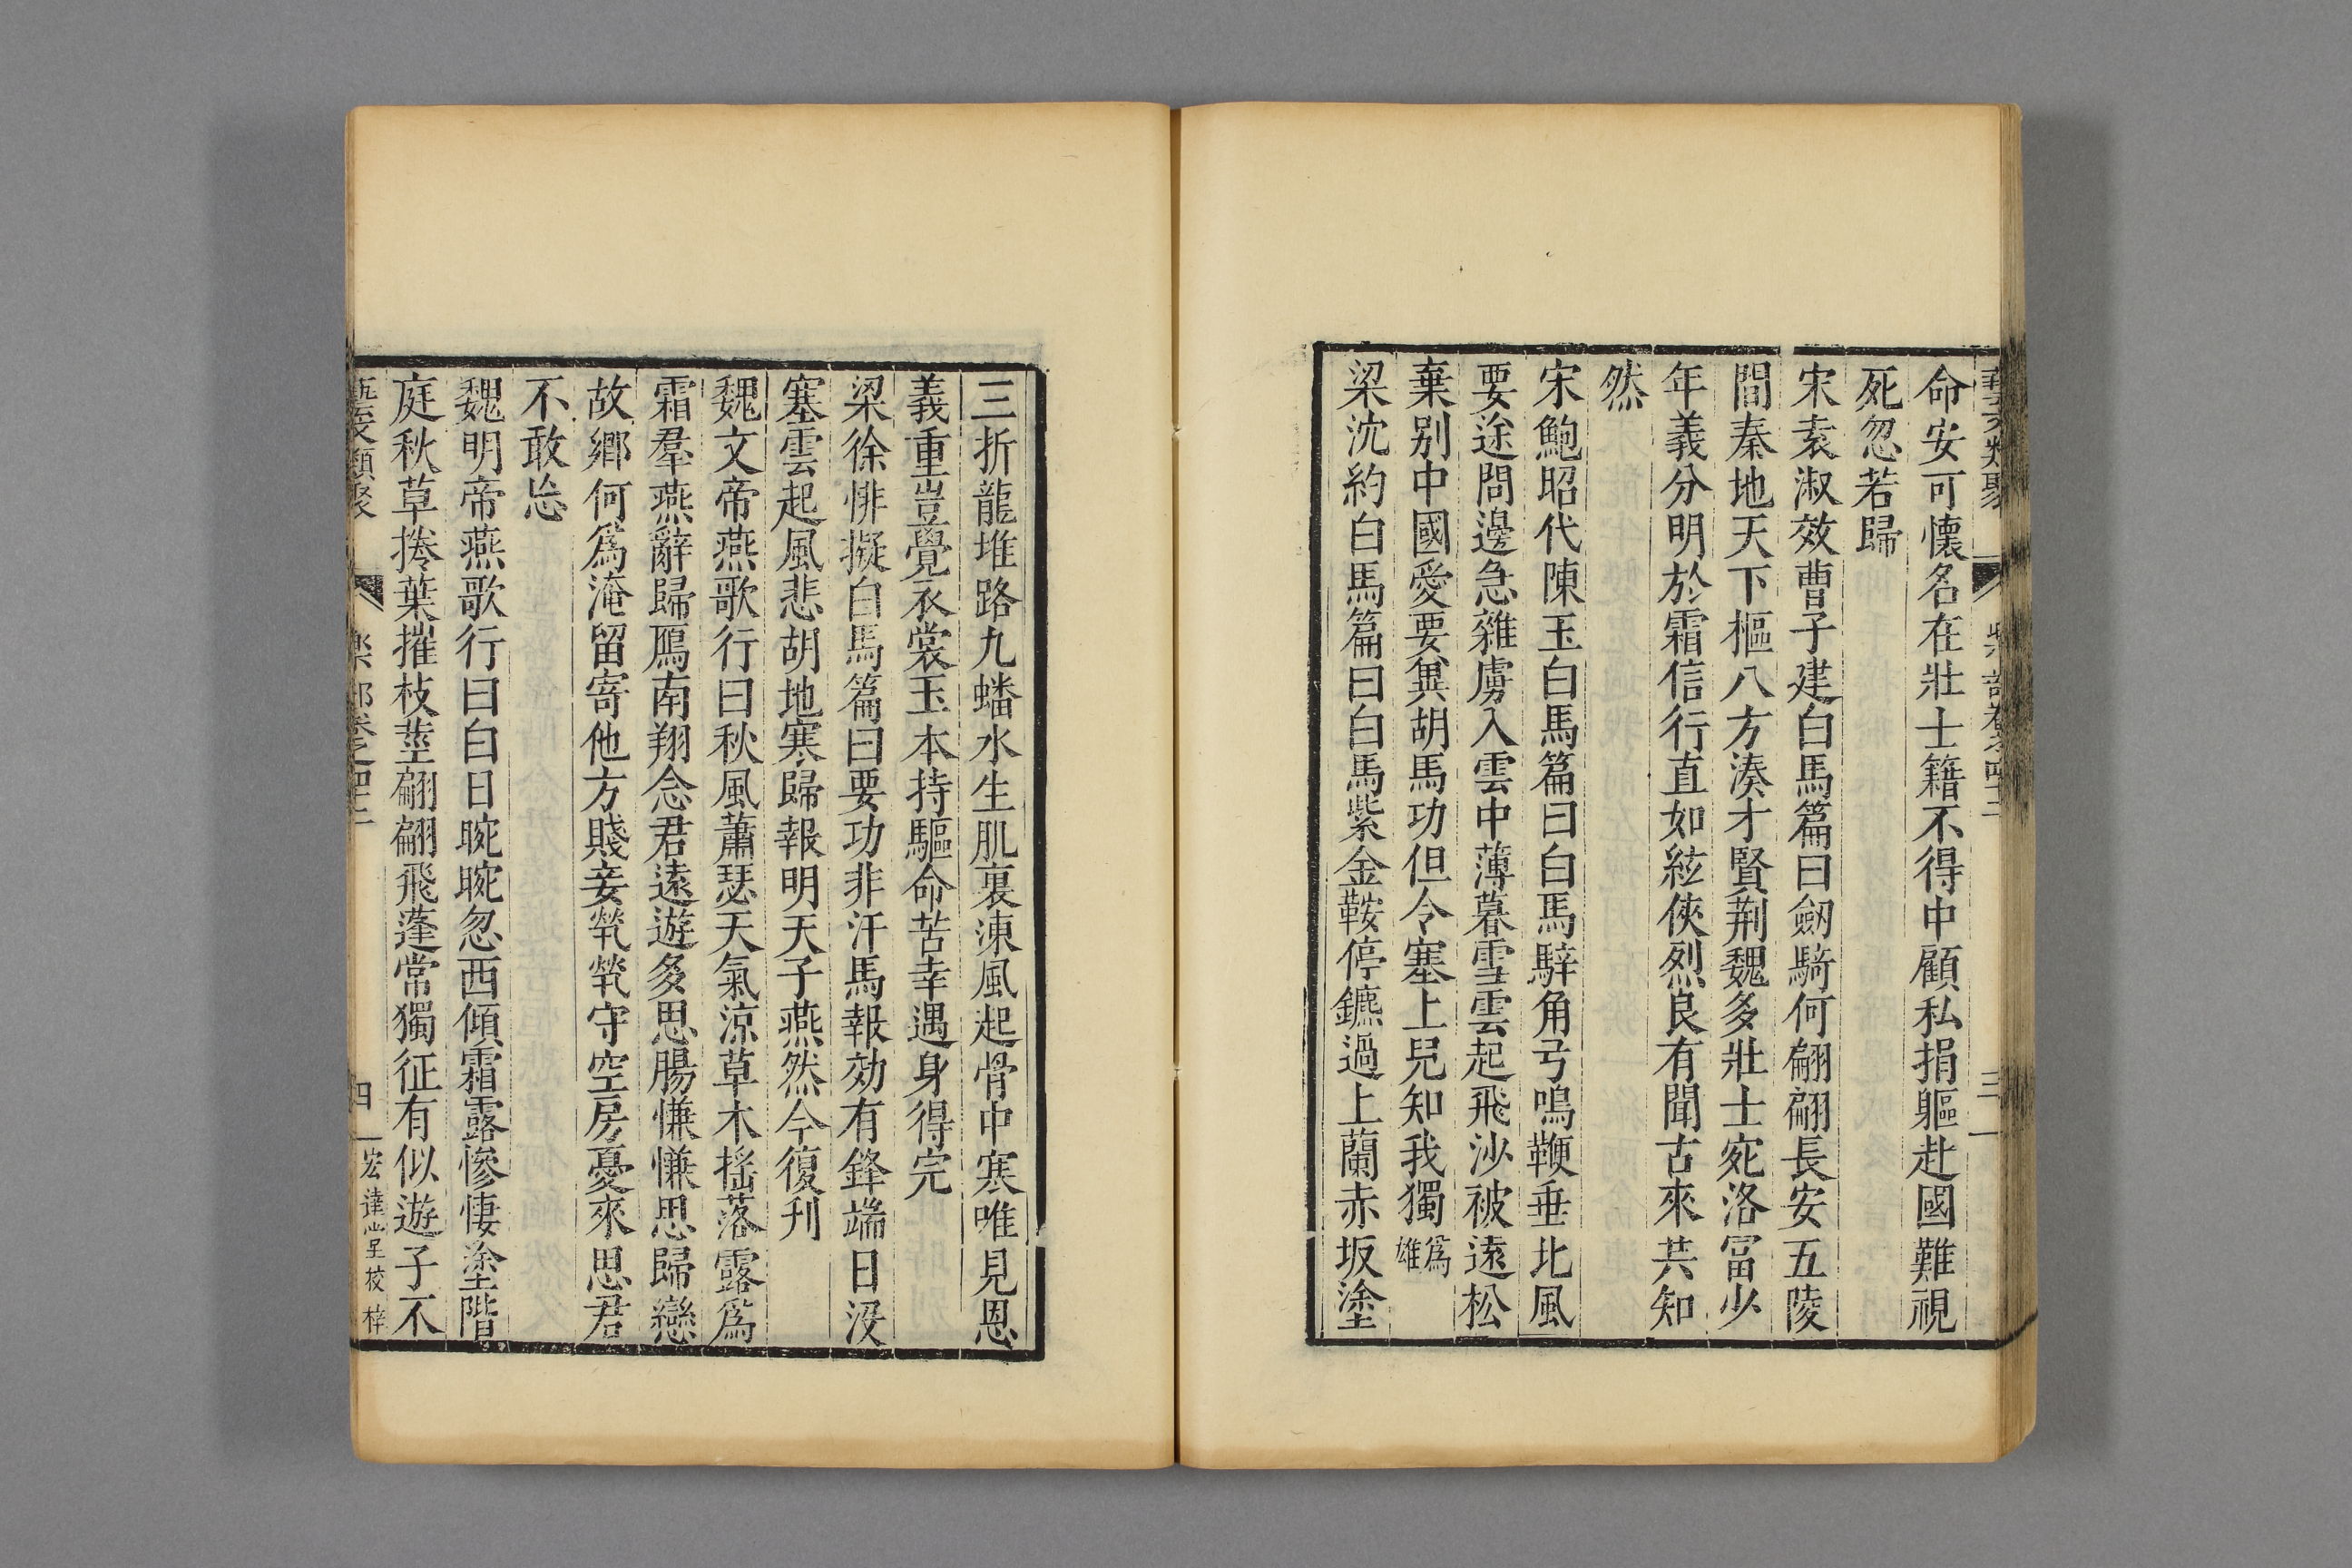 命安可懷名在壯士籍不得中顧私捐軀赴國難視
死忽若歸
宋袁淑效曹子建白馬篇曰劒騎何翩翩長安五陵
間秦地天下樞八方湊才賢荆魏多壯士宛洛冨少
年義分明於霜信行直如絃俠烈良有聞古來共知
然
宋鮑昭代陳玉白馬篇曰白馬騂角弓鳴鞭垂北風
要途問邊急雜虜入雲中薄暮雪雲起飛沙被遠松
棄別中國愛要兾胡馬功但令塞上兒知我獨爲雄
梁沈約白馬篇曰白馬紫金鞍停鑣過上蘭赤坂塗
三折龍堆路九蟠水生肌裏凍風起骨中寒唯見恩
義重豈覺衣裳玉本持驅命苦幸遇身得完
梁徐悱擬白馬篇曰要功非汗馬報効有鋒端日没
塞雲起風悲胡地寒歸報明天子燕然今復刋
魏文帝燕歌行曰秋風蕭瑟天氣涼草木摇落露爲
霜羣燕辭歸鴈南翔念君遠遊多思腸慊慊思歸戀
故鄉何爲淹留寄他方賤妾煢煢守空房憂來思君
不敢忘
魏明帝燕歌行曰白日晼晼忽西傾霜露慘悽塗階
庭秋草捲葉摧枝莖翩翩飛蓬常獨征有似遊子不
四
宏達堂校梓